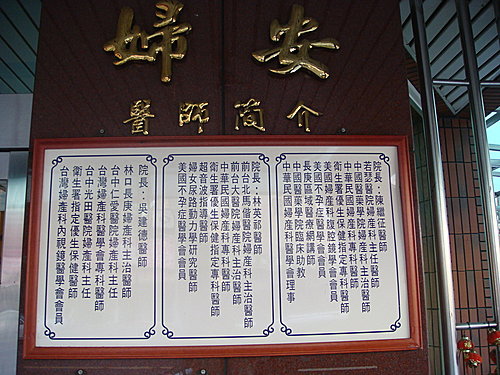 安婦
醫師簡介
院長：陳繼征醫師
若瑟醫院婦產科主任醫師
中國醫藥學院婦產科主治醫師
中華民國婦產科專科醫師
衛生署優生保健指定專科醫師
美國婦產科腹腔鏡醫學會會員
美國不孕症醫學會會員
長庚區域醫療網講師
中國醫藥學院臨床助教
中華民國婦產科醫學會理事
院長：林英祁醫師
前台北馬偕醫院婦產科主治醫師
前台大醫院婦產科主治醫師
中華民國婦產科專科醫師
衛生署優生保健指定專科醫師
超音波指導醫師
婦女尿路動力學研究醫師
美國不孕症醫學會會員
院長：吳建德醫師
林口長庚婦產科主治醫師
台中仁愛醫院婦產科主任
台灣婦產科醫學會專科醫師
台中光田醫院婦產科主任
衛生署指定優生保健醫師
台灣婦產科內視鏡醫學會會員